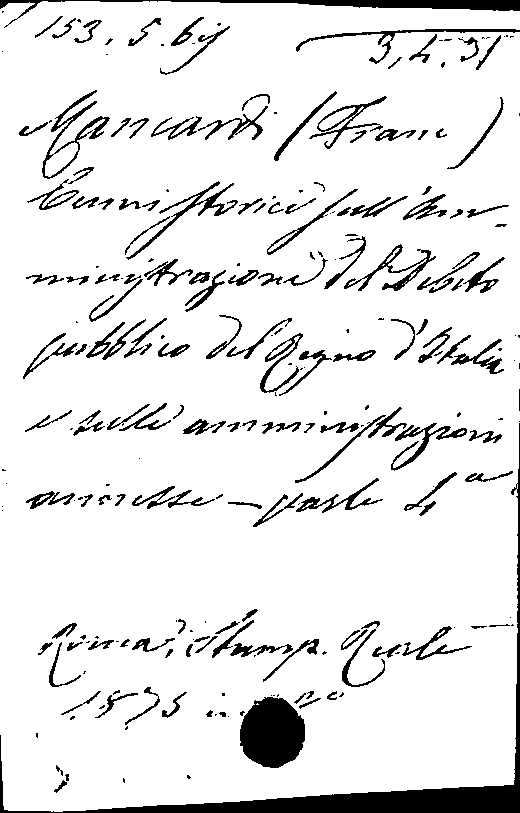 153. 5. bis
3, 4. 31
Mancardi (Franc )
Cenni storici sull'Am-
ministrazione del Debito
pubblico del Regno d'Italia
e sulle amministrazioni
annesse — parte 4a
Roma, Stamp. Reale
1875 in